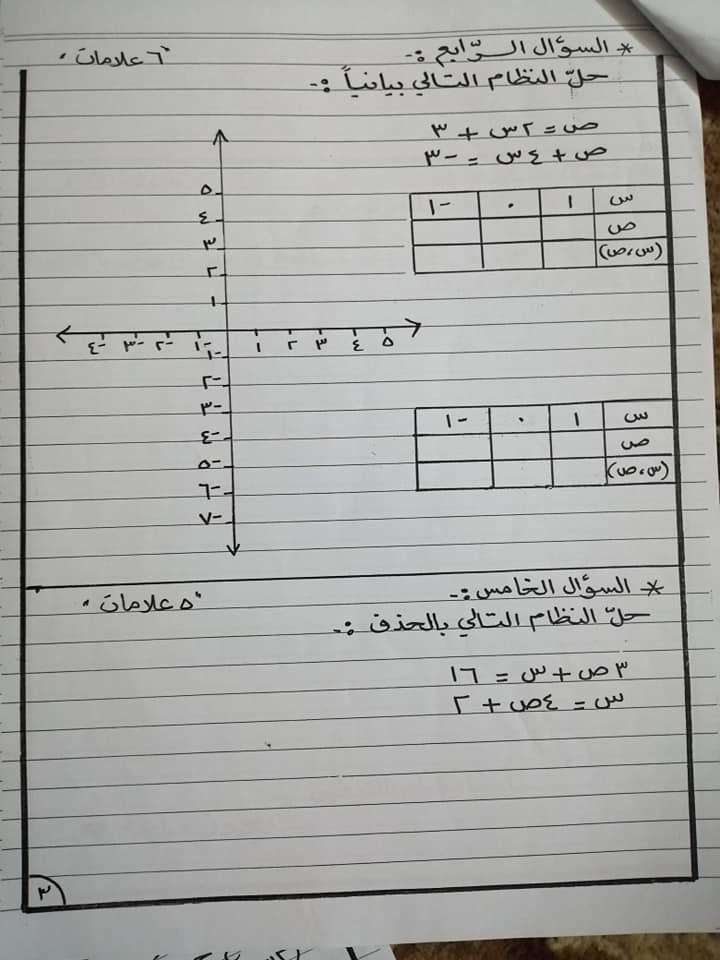 * السؤال الرّابع :- "٦ علامات"
حلّ النظام التالي بيانياً :-
ص = ٢س + ٣
ص + ٤س = -٣
س ١ ٠ -١
ص
(س،ص)
٥
٤
٣
٢
١
-٤ -٣ -٢ -١ ١ ٢ ٣ ٤ ٥
-١
-٢
-٣
-٤
-٥
-٦
-٧
س ١ ٠ -١
ص
(س،ص)
* السؤال الخامس :- "٥ علامات"
حلّ النظام التالي بالحذف :-
٣ص + س = ١٦
س = ٤ص + ٢
٣